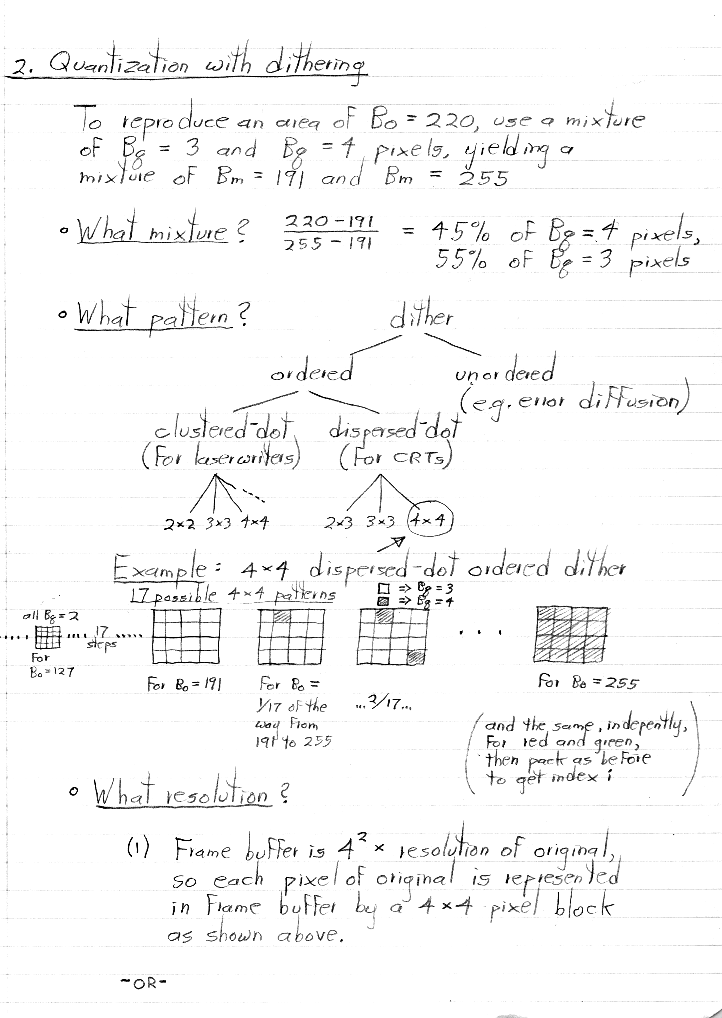 2. Quantization with dithering
To reproduce an area of Bo = 220, use a mixture
of Bq = 3 and Bq = 4 pixels, yielding a
mixture of Bm = 191 and Bm = 255
• What mixture? 220-191 / 255-191 = 45% of Bq = 4 pixels,
55% of Bq = 3 pixels
• What pattern? dither
ordered unordered
(e.g. error diffusion)
clustered-dot dispersed-dot
(For laserwriters) (For CRTs)
2×2 3×3 4×4 2×3 3×3 4×4
Example: 4×4 dispersed-dot ordered dither
17 possible 4×4 patterns
□ => Bq = 3
■ => Bq = 4
all Bq = 2
..... .... 17 ..... . . .
steps
For
Bo=127
For Bo = 191 For Bo = ...2/17... For Bo = 255
1/17 of the
way from
191 to 255
(and the same, indepently,
for red and green,
then pack as before
to get index i)
• What resolution?
(1) Frame buffer is 4² × resolution of original,
so each pixel of original is represented
in frame buffer by a 4×4 pixel block
as shown above.
-OR-